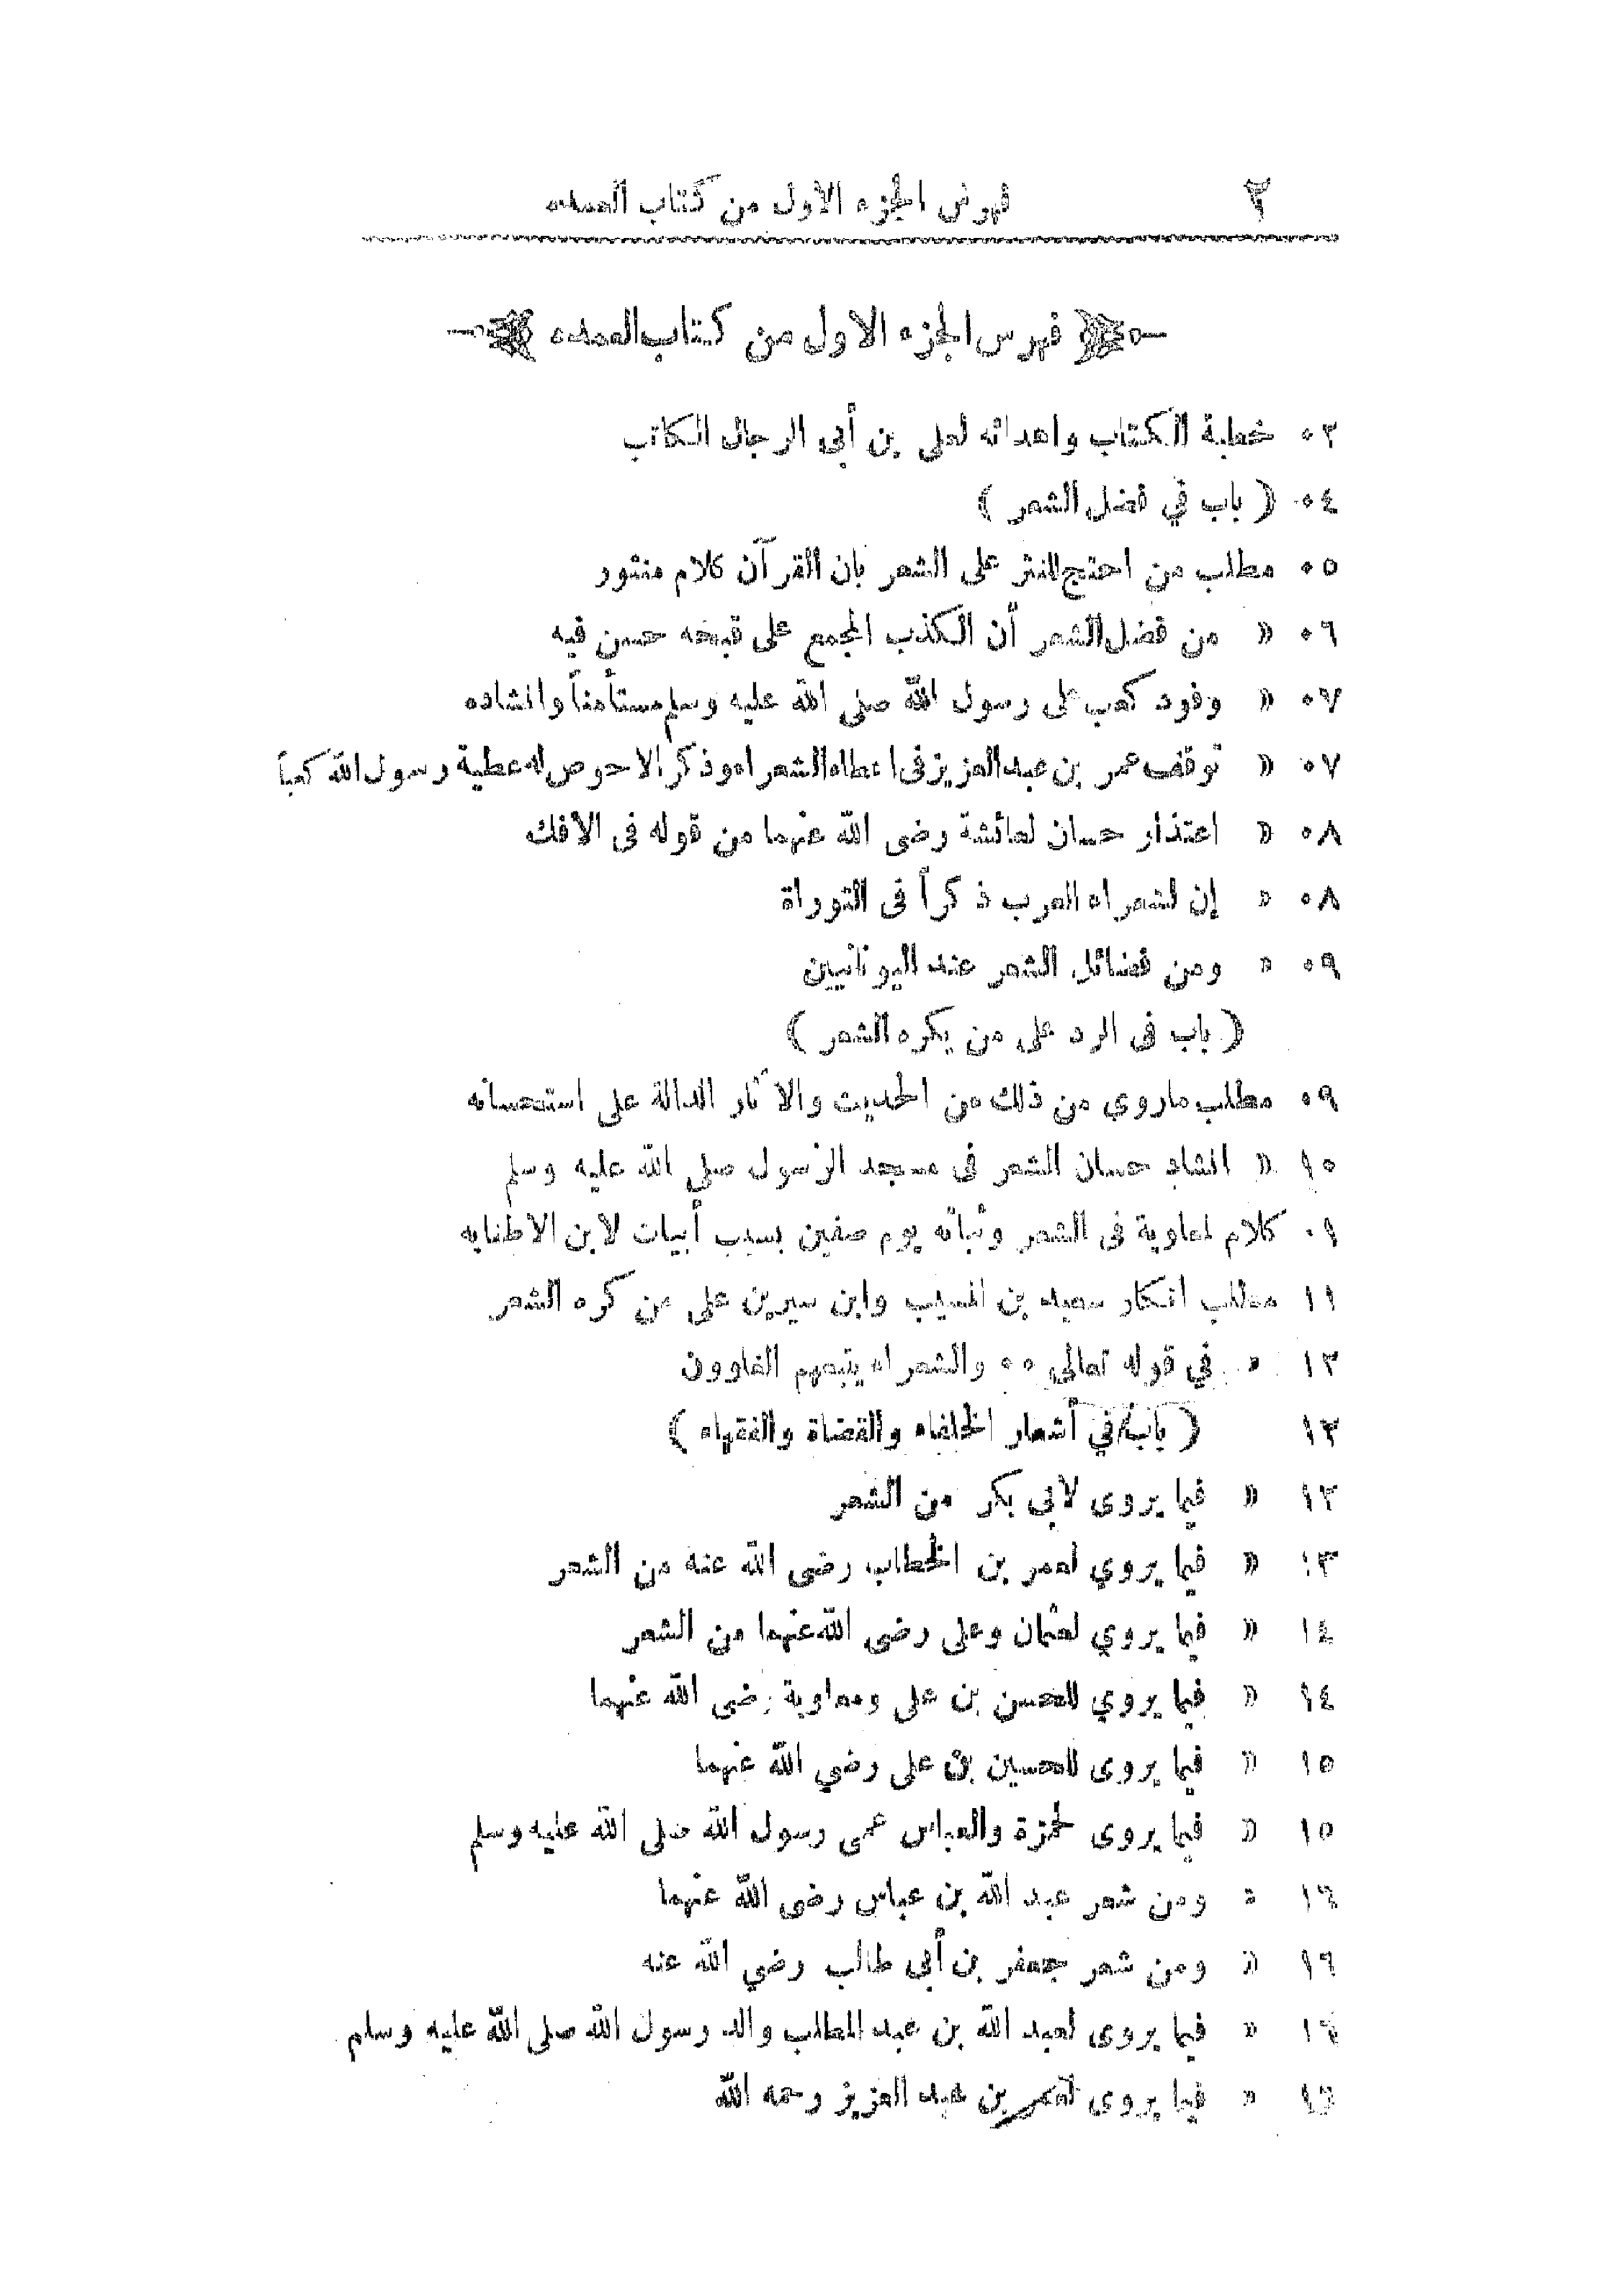 ٢ فهرس الجزء الاول من كتاب العمده
فهرس الجزء الاول من كتاب العمده
٠٢ خطبة الكتاب واهدائه لعلى بن أبى الرجال الكاتب
٠٤ ( باب في فضل الشعر )
٠٥ مطلب من احتج للنثر على الشعر بان القرآن كلام منثور
٠٦ » من فضل الشعر أن الكذب المجمع على قبحه حسن فيه
٠٧ » وفود كعب على رسول الله صلى الله عليه وسلم مستأمناً وانشاده
٠٧ » توقف عمر بن عبد العزيز فى اعطاء الشعراء وذكر الاحوص له عطية رسول الله كعباً
٠٨ » اعتذار حسان لعائشة رضى الله عنهما من قوله فى الافك
٠٨ » إن لشعراء العرب ذكراً فى التوراة
٠٩ » ومن فضائل الشعر عند اليونانيين
( باب فى الرد على من يكره الشعر )
٠٩ مطلب ماروي من ذلك من الحديث والآثار الدالة على استحسانه
١٠ » انشاد حسان الشعر فى مسجد الرسول صلى الله عليه وسلم
كلام لمعاوية فى الشعر وثباته يوم صفين بسبب أبيات لابن الاطنابه
١١ مطلب انكار سعيد بن المسيب وابن سيرين على من كره الشعر
١٢ » في قوله تعالى ٠٠ والشعراء يتبعهم الغاوون
١٣ ( باب في أشعار الخلفاء والقضاة والفقهاء )
١٣ » فيما يروى لابى بكر من الشعر
١٣ » فيما يروي لعمر بن الخطاب رضى الله عنه من الشعر
١٤ » فيما يروي لعثمان وعلى رضى الله عنهما من الشعر
١٤ » فيما يروي للحسن بن على ومعاوية رضى الله عنهما
١٥ » فيما يروى للحسين بن على رضي الله عنهما
١٥ » فيما يروى لحمزة والعباس عمى رسول الله صلى الله عليه وسلم
١٦ » ومن شعر عبد الله بن عباس رضى الله عنهما
١٦ » ومن شعر جعفر بن أبى طالب رضي الله عنه
١٦ » فيما يروى لعبد الله بن عبد المطلب والد رسول الله صلى الله عليه وسلم
١٦ » فيما يروى لعمر بن عبد العزيز رحمه الله